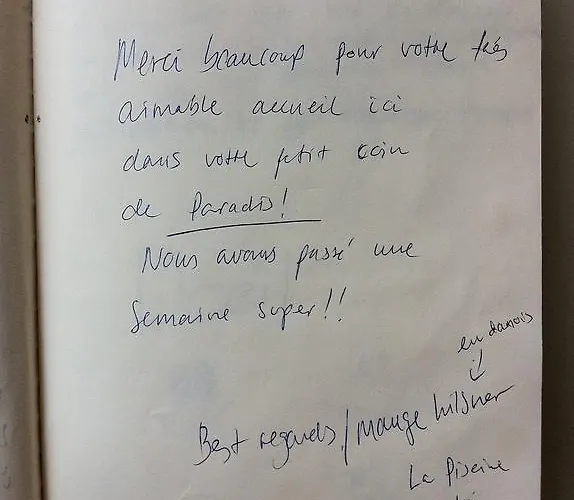 Merci beaucoup pour votre très
aimable accueil ici
dans votre petit coin
de Paradis!
Nous avons passé une
semaine super!!
en danois
Best regards / mange hilsner
La Piscine